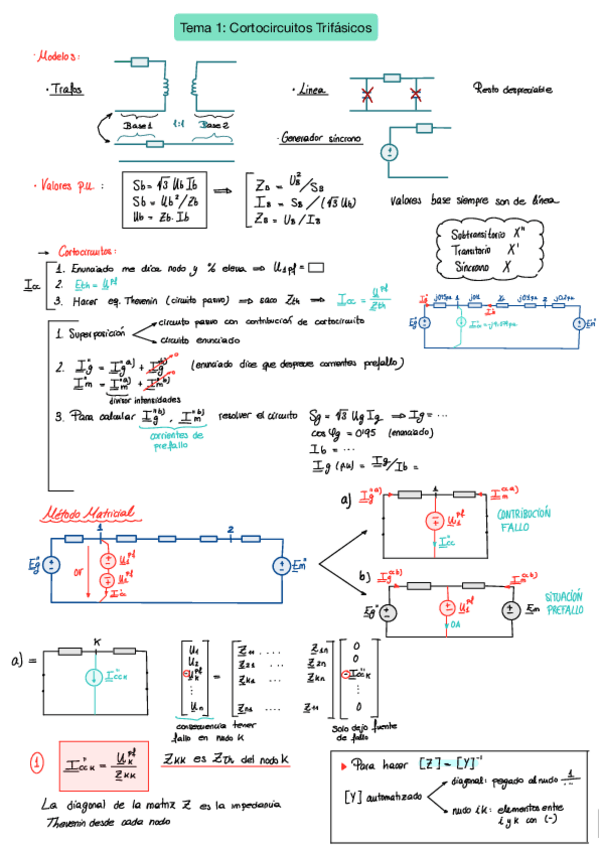 Tema 1: Cortocircuitos Trifásicos
· Modelos:
· Trafos
· Linea
Resto despreciable
Base 1 1:1 Base 2
· Generador síncrono
· Valores p.u.:
Sb = √3 Ub Ib
Sb = Ub²/Zb
Ub = Zb · Ib
⟹
Z_B = U_B²/S_B
I_B = S_B / (√3 U_B)
Z_B = U_B / I_B
Valores base siempre son de línea
Subtransitorio X"
Transitorio X'
Síncrono X
→ Cortocircuitos:
1. Enunciado me dice nodo y % eleva ⟹ U1pf = □
2. Eth = U^pf
3. Hacer eq. Thevenin (circuito pasivo) ⟹ saco Zth ⟹ Icc = U^pf / Zth
Icc
1. Superposición
circuito pasivo con contribución de cortocircuito
circuito enunciado
2. Ig" = Ig"a) + Ig"b) 0 (enunciado dice que desprecie corrientes prefallo)
Im" = Im"a) + Im"b) 0
divisor intensidades
3. Para calcular Ig"b), Im"b) resolver el circuito
corrientes de
prefallo
Sg = √3 Ug Ig ⟹ Ig = ...
cos φg = 0'95 (enunciado)
Ib = ...
Ig (pu) = Ig/Ib =
Método Matricial
1 2
Eg" U1^pf U1^pf Icc" Em"
a) Ig"a) 1 Im"a)
U1^pf
Icc"
CONTRIBUCIÓN
FALLO
b) Ig"b) Im"b)
Eg" U1^pf Em
0A
SITUACIÓN
PREFALLO
a) =
K
IccK"
U1 Z11 .... Z1n 0
U2 Z21 .... Z2n 0
⊖Uk^pf = Zk1 Zkn ⊖IccK"
⋮
Un Zn1 ... 0
consecuencia tener
fallo en nodo K
Solo dejo fuente
de fallo
1 IccK" = Uk^pf / Zkk
Zkk es Zth del nodo K
La diagonal de la matriz Z es la impedancia
Thevenin desde cada nodo
▸ Para hacer [Z] = [Y]⁻¹
[Y] automatizado
diagonal: pegado al nudo 1 ...
nudo ik: elementos entre
i y k con (-)